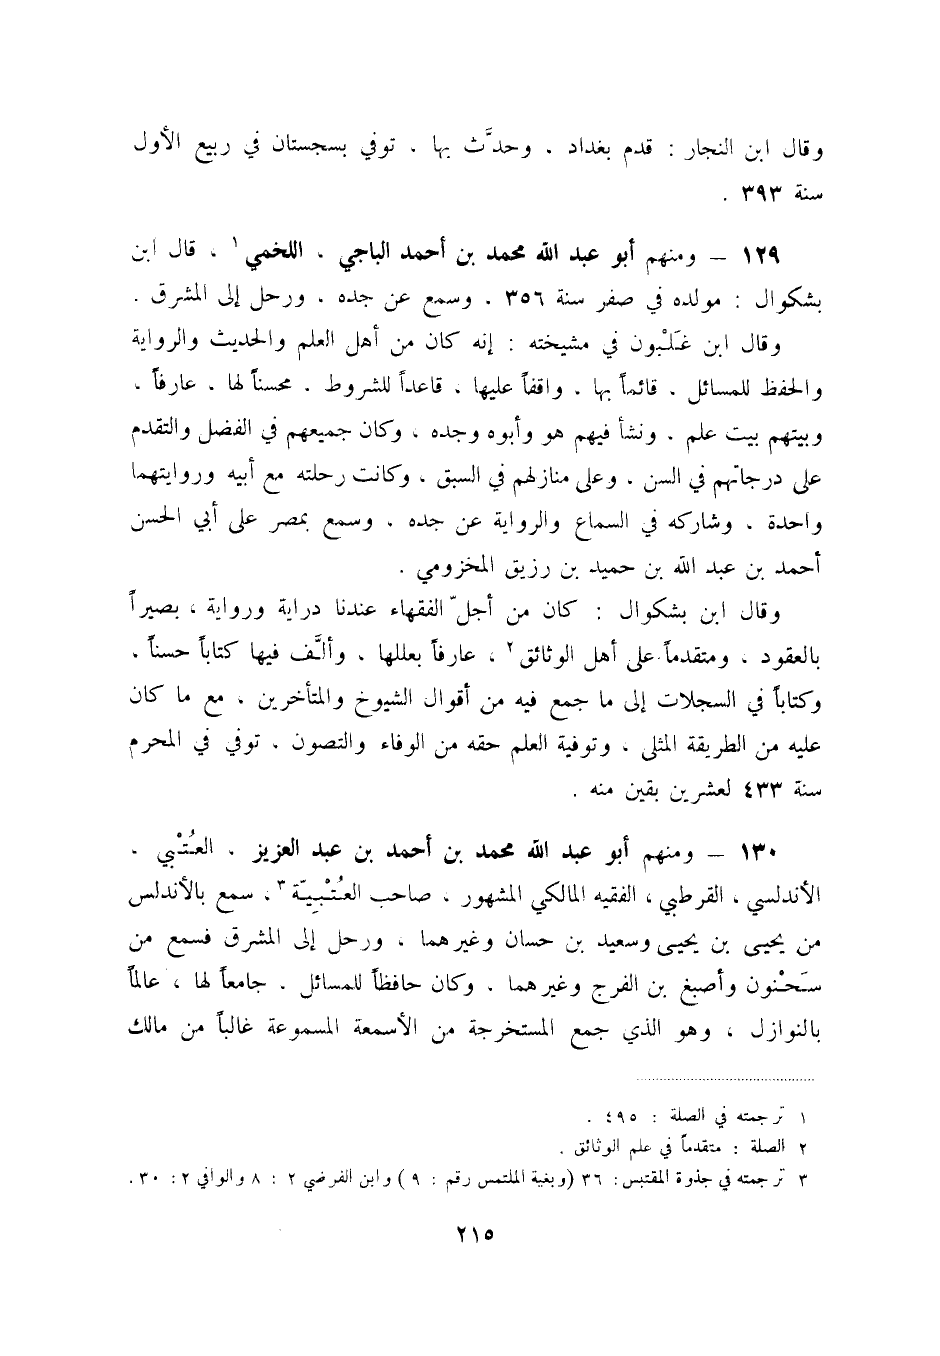 وقال ابن النجار : قدم بغداد ، وحدَّث بها ، توفي بسجستان في ربيع الأول
سنة ٣٩٣ .
١٢٩ – ومنهم أبو عبد الله محمد بن أحمد الباجي ، اللخمي ١ ، قال ابن
بشكوال : مولده في صفر سنة ٣٥٦ ، وسمع عن جده ، ورحل إلى المشرق .
وقال ابن غَلْبون في مشيخته : إنه كان من أهل العلم والحديث والرواية
والحفظ للمسائل ، قائماً بها ، واقفاً عليها ، قاعداً للشروط ، محسناً لها ، عارفاً ،
وبيتهم بيت علم ، ونشأ فيهم هو وأبوه وجده ، وكان جميعهم في الفضل والتقدم
على درجاتهم في السن ، وعلى منازلهم في السبق ، وكانت رحلته مع أبيه وروايتهما
واحدة ، وشاركه في السماع والرواية عن جده ، وسمع بمصر على أبي الحسن
أحمد بن عبد الله بن حميد بن رزيق المخزومي .
وقال ابن بشكوال : كان من أجلّ الفقهاء عندنا دراية ورواية ، بصيراً
بالعقود ، ومتقدماً على أهل الوثائق ٢ ، عارفاً بعللها ، وألَّف فيها كتاباً حسناً ،
وكتاباً في السجلات إلى ما جمع فيه من أقوال الشيوخ والمتأخرين ، مع ما كان
عليه من الطريقة المثلى ، وتوفية العلم حقه من الوفاء والتصون ، توفي في المحرم
سنة ٤٣٣ لعشرين بقين منه .
١٣٠ – ومنهم أبو عبد الله محمد بن أحمد بن عبد العزيز ، العُتْبي ،
الأندلسي ، القرطبي ، الفقيه المالكي المشهور ، صاحب العُتْبِيّة ٣ ، سمع بالأندلس
من يحيى بن يحيى وسعيد بن حسان وغيرهما ، ورحل إلى المشرق فسمع من
سَحْنون وأصبغ بن الفرج وغيرهما ، وكان حافظاً للمسائل ، جامعاً لها ، عالماً
بالنوازل ، وهو الذي جمع المستخرجة من الأسمعة المسموعة غالباً من مالك
١ ترجمته في الصلة : ٤٩٥ .
٢ الصلة : متقدماً في علم الوثائق .
٣ ترجمته في جذوة المقتبس : ٣٦ (وبغية الملتمس رقم : ٩ ) وابن الفرضي ٢ : ٨ والوافي ٢ : ٣٠ .
٢١٥